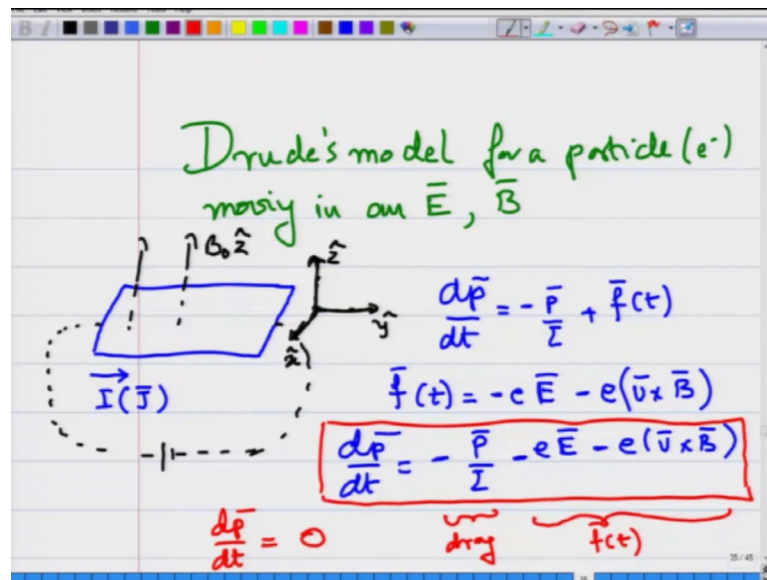 Drude's model for a particle (e⁻)
moving in an E̅, B̅
B₀ ẑ
ẑ
ŷ
x̂
I (J̅)
dp̅/dt = - p̅/τ + f̅(t)
f̅(t) = -e E̅ - e(v̅ x B̅)
dp̅/dt = - p̅/τ - e E̅ - e(v̅ x B̅)
drag
f̅(t)
dp̅/dt = 0
35 / 45